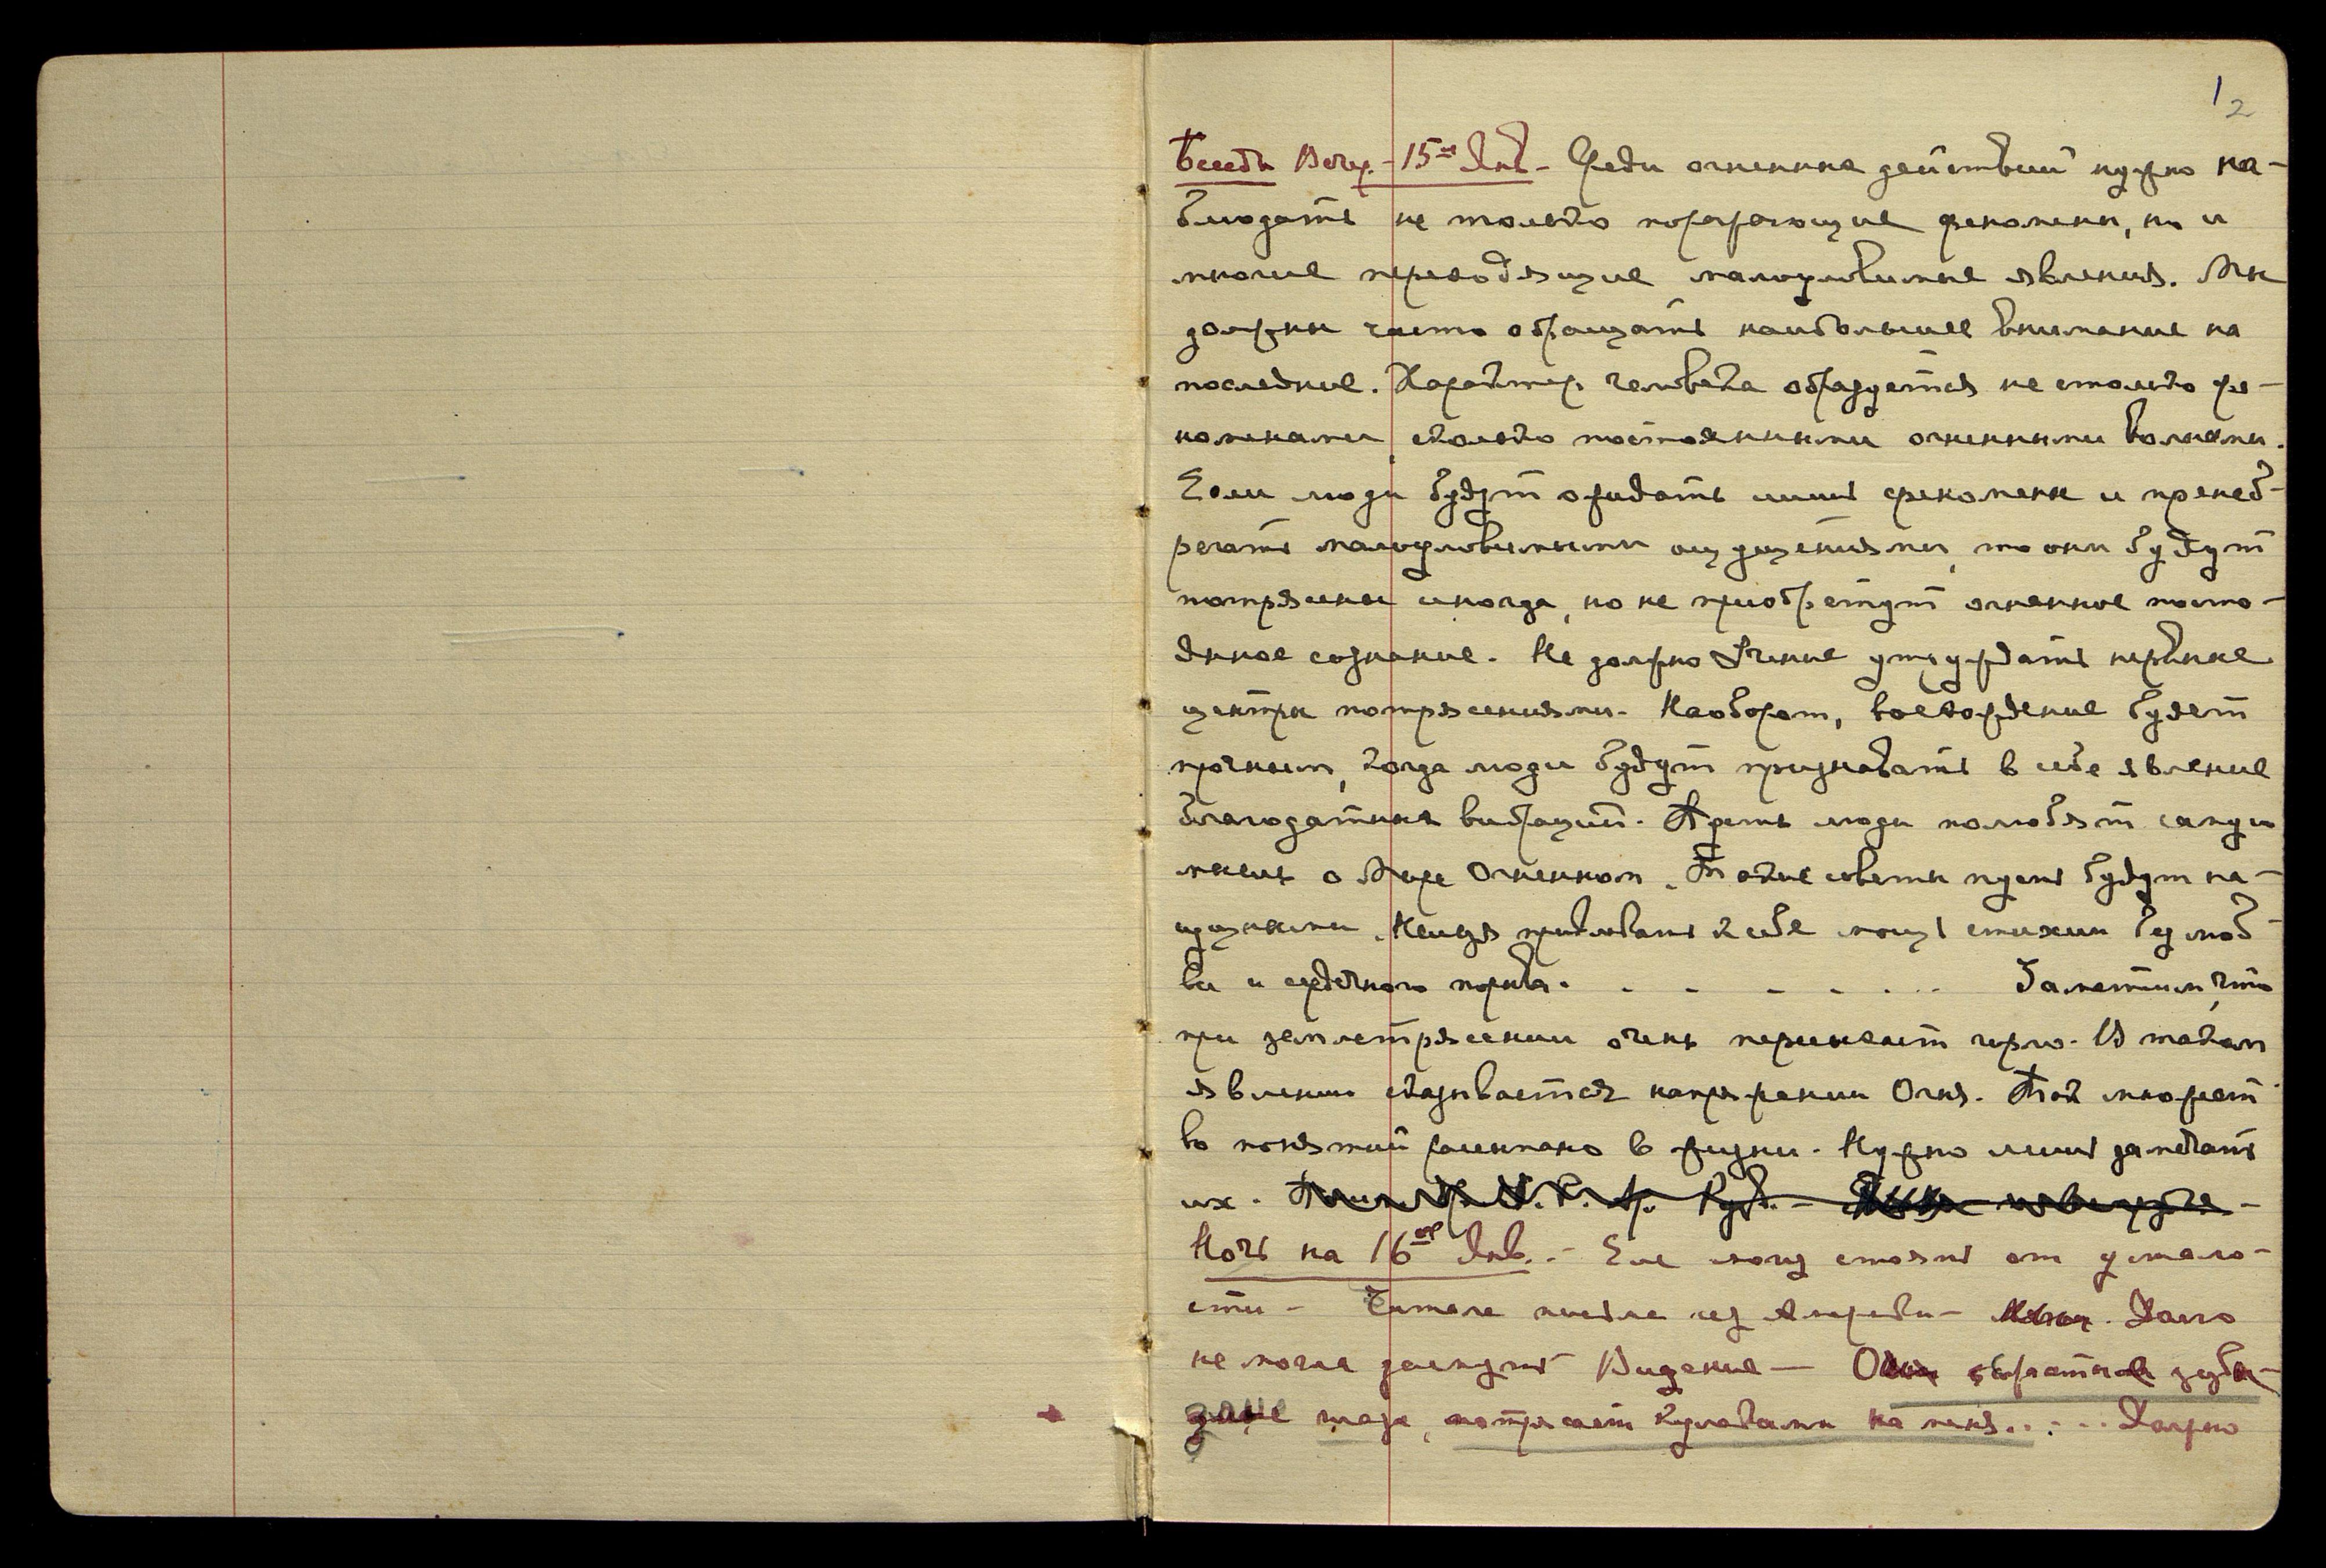 1 2
Беседы Вечер. - 15ое Янв. - Среди огненных действий нужно на-
блюдать не только поражающие феномены, но и
многие переходящие малоуловимые явления. Мы
должны часто обращать наибольшее внимание на
последние. Характер человека образуется не столько фе-
номенами, сколько постоянными огненными волнами.
Если люди будут ожидать лишь феномены и пренеб-
регать малоуловимыми ощущениями, то они будут
потрясены иногда, но не приобретут огненное посто-
янное сознание. Не должно Учение утруждать нервные
центры потрясениями. Наоборот, восхождение будет
прочным, когда люди будут признавать в себе явление
благодатных вибраций. Пусть люди полюбят самую
мысль о Мире Огненном. Такие советы пусть будут на-
сущными. Нельзя приковать к себе мощь стихии без люб-
ви и сердечного порыва. . . . . . . . Заметим, что
при землетрясении очень пересыхает горло. В таком
явлении сказывается напряжении Огня. Так множест
во понятий рассыпано в жизни. Нужно лишь замечать
их.
Ночь на 16ое Янв. - Еле могу стоять от устало-
сти - Читала письма из Америки - Долго
не могла заснуть Видение —
глаза, потрясает кулаками на меня. . . . . Должно